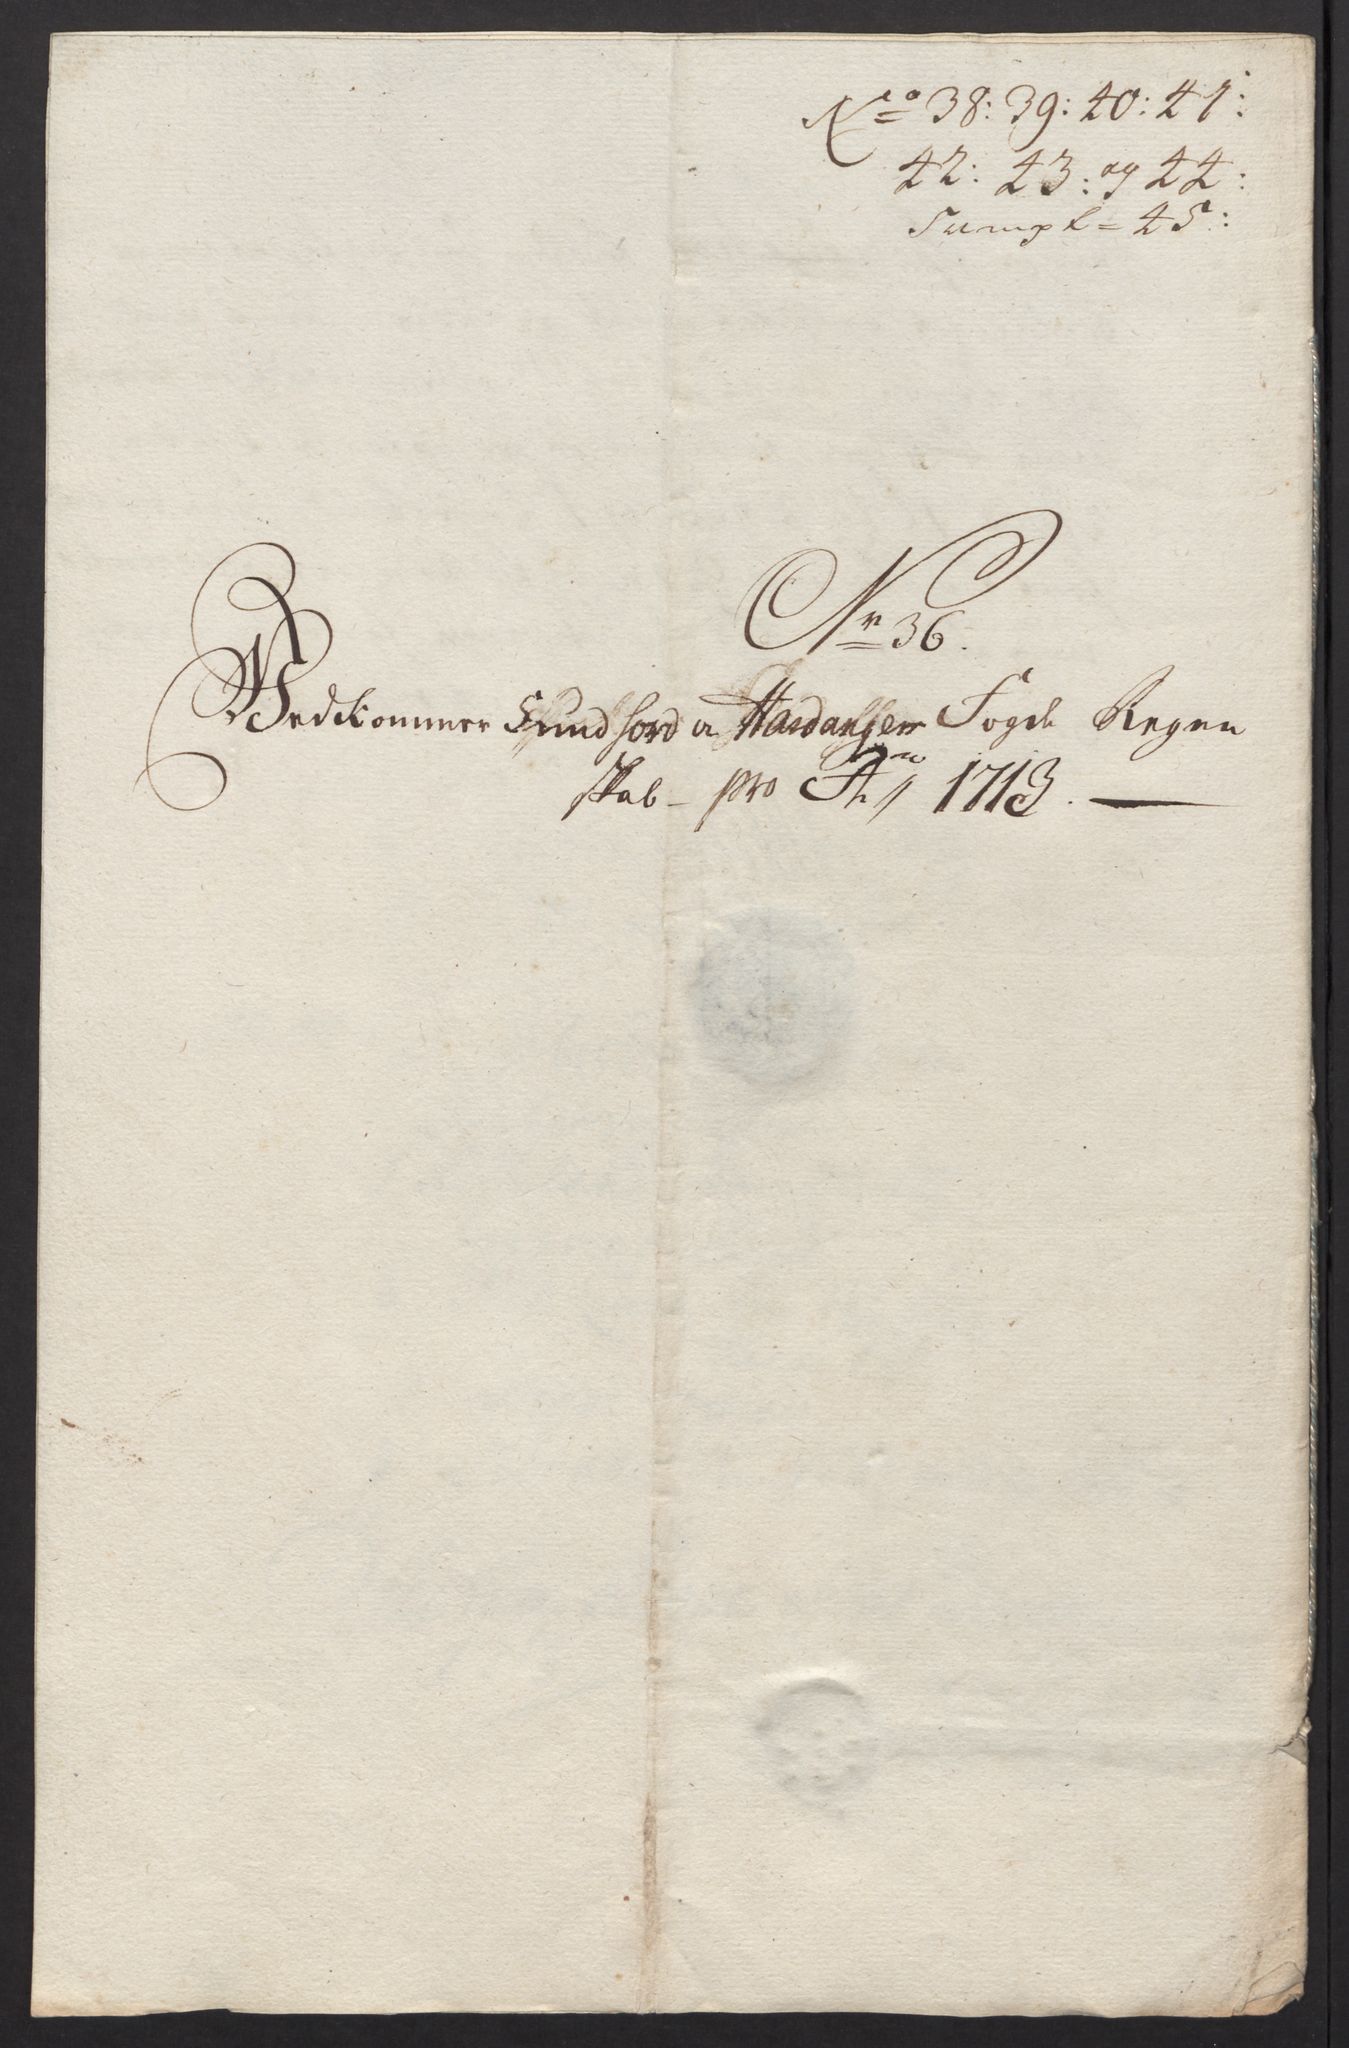 No 38: 39: 40: 41:
42: 43: og 44:
Sampt = 45:
Nr 36.
Vedkommer Sundhord og Hardanger Fogde Regen
skab – pro Ao 1713. —